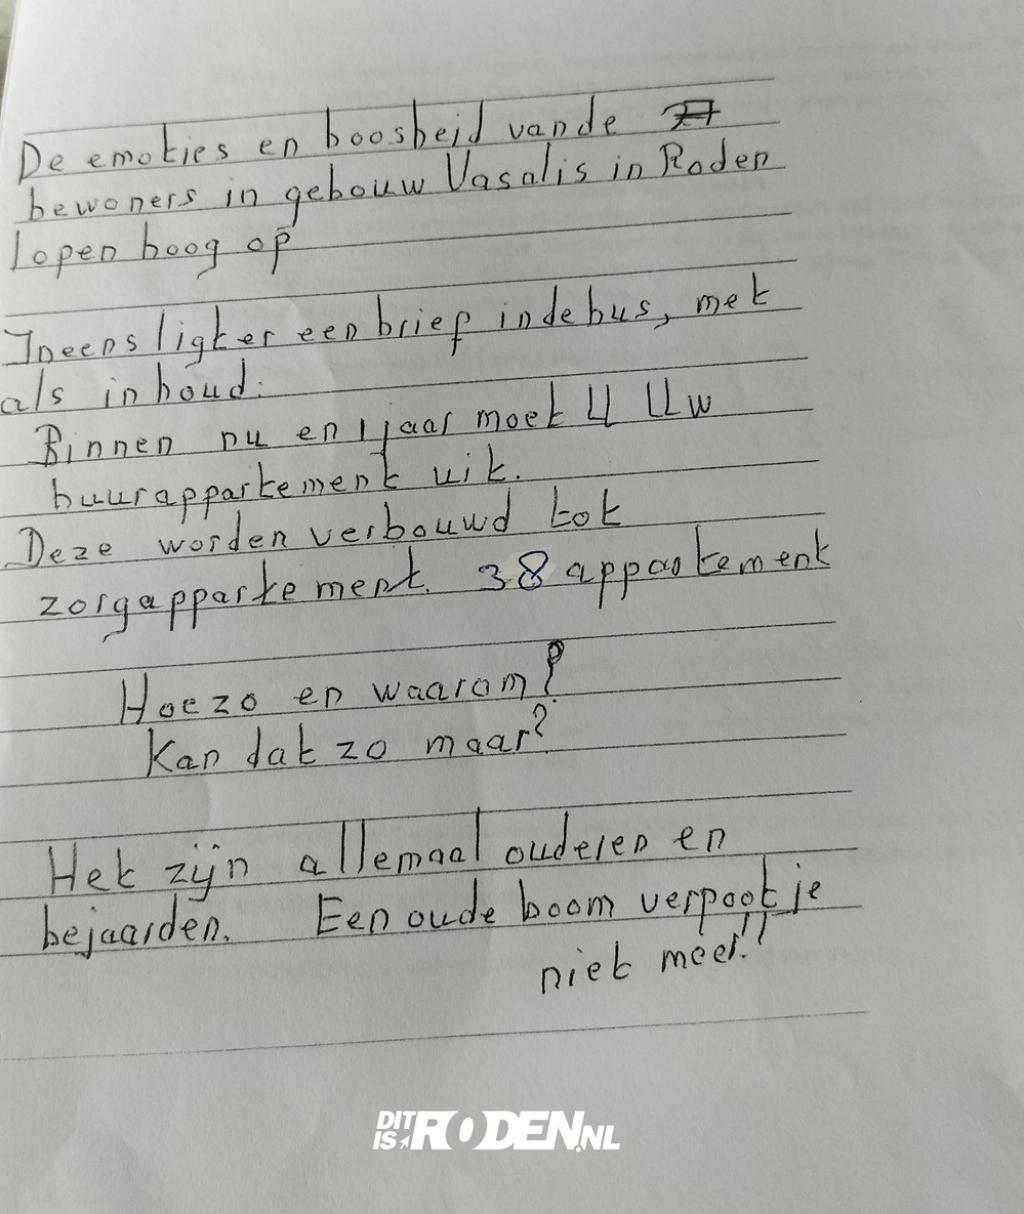 De emoties en boosheid van de
bewoners in gebouw Vasalis in Roden
lopen hoog op
Ineens ligt er een brief in de bus, met
als inhoud:
Binnen nu en 1 jaar moet U Uw
huurappartement uit.
Deze worden verbouwd tot
zorgappartement. 38 appartement
Hoezo en waarom?
Kan dat zo maar?
Het zijn allemaal ouderen en
bejaarden. Een oude boom verpoot je
niet meer!!
DIT IS RODEN.NL